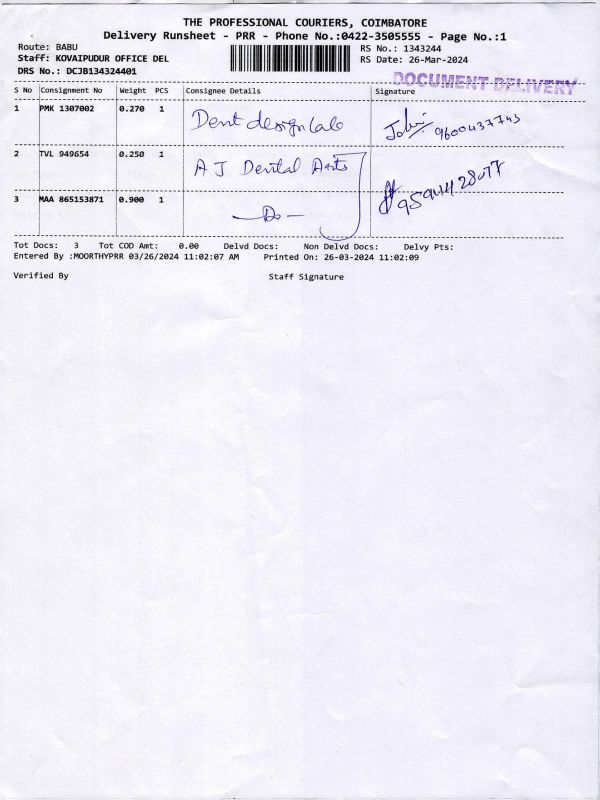 THE PROFESSIONAL COURIERS, COIMBATORE
Delivery Runsheet - PRR - Phone No.:0422-3505555 - Page No.:1
Route: BABU
Staff: KOVAIPUDUR OFFICE DEL
DRS No.: DCJB134324401
RS No.: 1343244
RS Date: 26-Mar-2024
DOCUMENT DELIVERY
S No Consignment No Weight PCS Consignee Details Signature
1 PMK 1307002 0.270 1 Dent design lab 9600437743
2 TVL 949654 0.250 1 A J Dental Arts
3 MAA 865153871 0.900 1 - Do -
Tot Docs: 3 Tot COD Amt: 0.00 Delvd Docs: Non Delvd Docs: Delvy Pts:
Entered By :MOORTHYPRR 03/26/2024 11:02:07 AM Printed On: 26-03-2024 11:02:09
Verified By Staff Signature